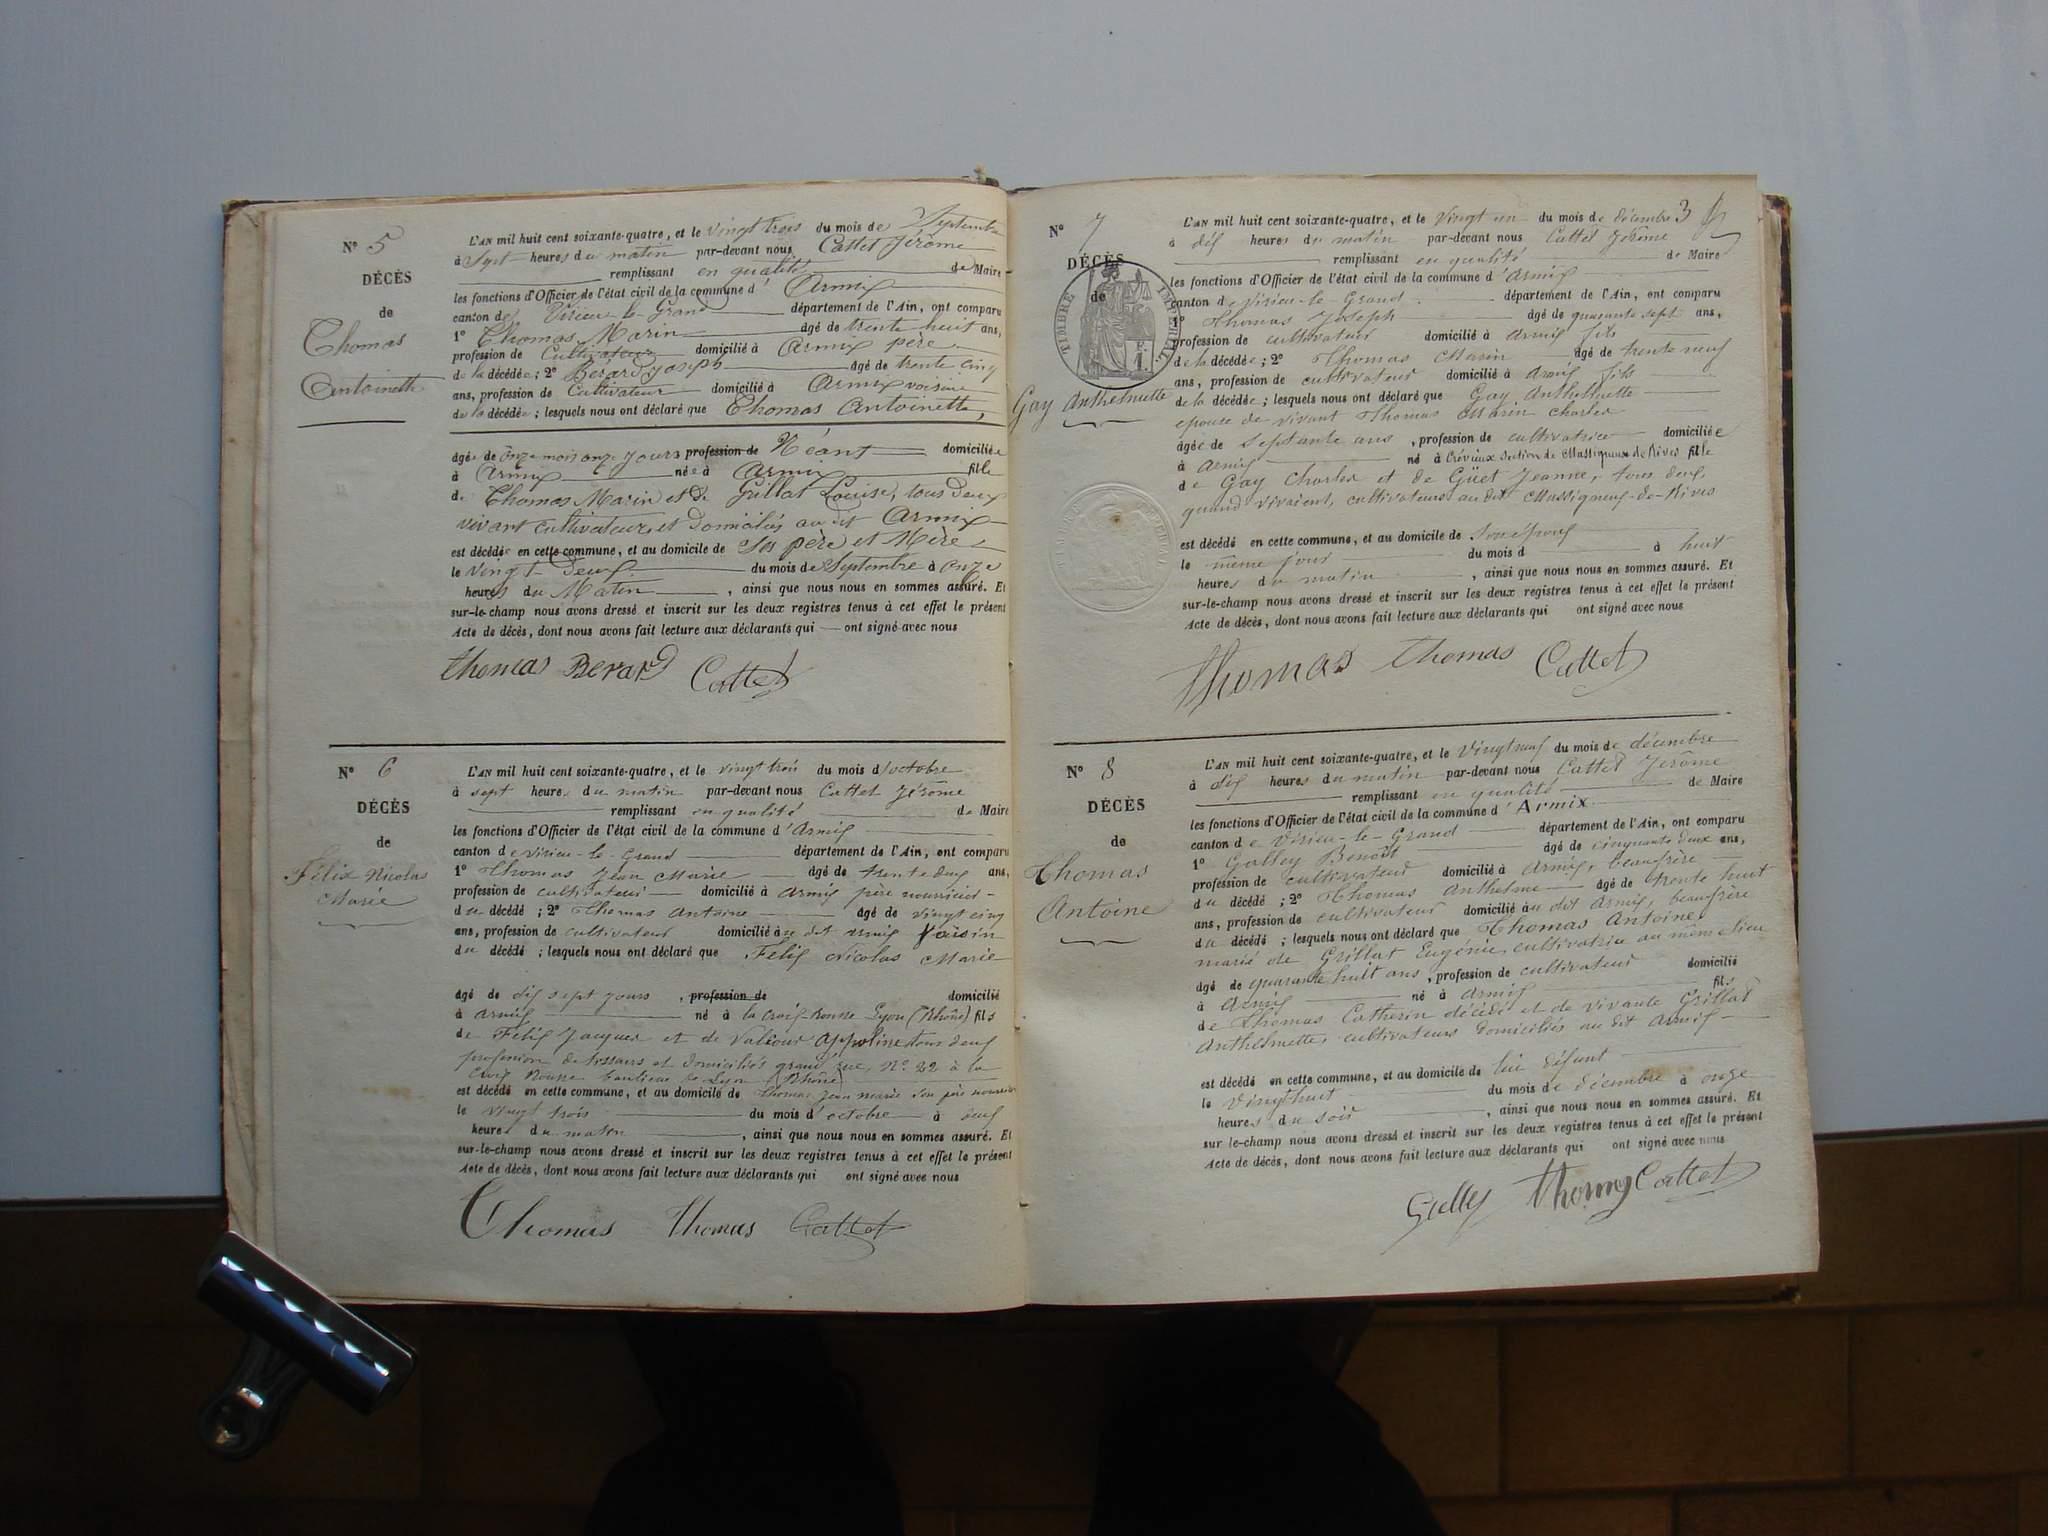 N° 5
DÉCÈS
de
Thomas
Antoinette
L'AN mil huit cent soixante-quatre, et le vingt trois du mois de Septembre
à Sept heures du matin par-devant nous Cattet Jérôme
remplissant en qualité de Maire
les fonctions d'Officier de l'état civil de la commune d' Armix
canton de Virieu-le-Grand département de l'Ain, ont comparu
1° Thomas Marin âgé de trente huit ans,
profession de Cultivateur domicilié à Armix père
de la décédée; 2° Bérard Joseph âgé de trente cinq
ans, profession de Cultivateur domicilié à Armix voisin
de la décédée; lesquels nous ont déclaré que Thomas Antoinette,
âgée de onze mois onze jours profession de Néant domiciliée
à Armix née à Armix fille
de Thomas Marin et de Grillat Louise, tous deux
vivant cultivateurs et domiciliés au dit Armix
est décédée en cette commune, et au domicile de ses père et Mère
le vingt-deux du mois de Septembre à onze
heures du Matin, ainsi que nous nous en sommes assuré. Et
sur-le-champ nous avons dressé et inscrit sur les deux registres tenus à cet effet le présent
Acte de décès, dont nous avons fait lecture aux déclarants qui ont signé avec nous
Thomas Berard Cattet
N° 6
DÉCÈS
de
Félix Nicolas
Marie
L'AN mil huit cent soixante-quatre, et le vingt trois du mois d'octobre
à sept heures du matin par-devant nous Cattet Jérôme
remplissant en qualité de Maire
les fonctions d'Officier de l'état civil de la commune d'Armix
canton de Virieu-le-Grand département de l'Ain, ont comparu
1° Thomas Jean Marie âgé de trente deux ans,
profession de cultivateur domicilié à Armix père nourricier
du décédé; 2° Thomas Antoine âgé de vingt cinq
ans, profession de cultivateur domicilié au dit Armix Voisin
du décédé; lesquels nous ont déclaré que Félix Nicolas Marie
âgé de dix sept jours, profession de domicilié
à Armix né à la Croix-Rousse Lyon (Rhône) fils
de Félix Jacques et de Valiour Appoline tous deux
profession de tisseurs et domiciliés grand rue, N° 22 à la
Croix Rousse banlieue de Lyon (Rhône)
est décédé en cette commune, et au domicile de Thomas Jean Marie son père nourricier
le vingt trois du mois d'octobre à
heures du matin, ainsi que nous nous en sommes assuré. Et
sur-le-champ nous avons dressé et inscrit sur les deux registres tenus à cet effet le présent
Acte de décès, dont nous avons fait lecture aux déclarants qui ont signé avec nous
Thomas Thomas Cattet
3
N° 7
DÉCÈS
de
Gay Anthelmette
TIMBRE IMPÉRIAL
L'AN mil huit cent soixante-quatre, et le vingt un du mois de décembre
à dix heures du matin par-devant nous Cattet Jérôme
remplissant en qualité de Maire
les fonctions d'Officier de l'état civil de la commune d'Armix
canton de Virieu-le-Grand département de l'Ain, ont comparu
1° Thomas Joseph âgé de quarante sept ans,
profession de cultivateur domicilié à Armix fils
de la décédée; 2° Thomas Marin âgé de trente neuf
ans, profession de cultivateur domicilié à Armix fils
de la décédée; lesquels nous ont déclaré que Gay Anthelmette
épouse de vivant Thomas Marin Charles
âgée de septante ans, profession de cultivatrice domiciliée
à Armix né à Crévieux section de Massignieux de Rives fille
de Gay Charles et de Güet Jeanne, tous deux,
quand vivaient, cultivateurs au dit Massigneux-de-Rives
est décédé en cette commune, et au domicile de son époux
le même jour du mois d à huit
heures du matin, ainsi que nous nous en sommes assuré. Et
sur-le-champ nous avons dressé et inscrit sur les deux registres tenus à cet effet le présent
Acte de décès, dont nous avons fait lecture aux déclarants qui ont signé avec nous
Thomas Thomas Cattet
N° 8
DÉCÈS
de
Thomas
Antoine
L'AN mil huit cent soixante-quatre, et le Vingt neuf du mois de décembre
à dix heures du matin par-devant nous Cattet Jérôme
remplissant en qualité de Maire
les fonctions d'Officier de l'état civil de la commune d'Armix
canton de Virieu-le-Grand département de l'Ain, ont comparu
1° Gulley Benoît âgé de cinquante deux ans,
profession de cultivateur domicilié à Armix, beaufrère
du décédé; 2° Thomas Anthelme âgé de trente huit
ans, profession de cultivateur domicilié au dit Armix, beaufrère
du décédé; lesquels nous ont déclaré que Thomas Antoine,
marié de Grillat Eugénie cultivatrice au même lieu
âgé de quarante huit ans, profession de cultivateur domicilié
à Armix né à Armix fils
de Thomas Catherin décédé et de vivante Grillat
Anthelmette, cultivateurs domiciliés au dit Armix
est décédé en cette commune, et au domicile de lui défunt
le Vingt huit du mois de décembre à onze
heures du soir, ainsi que nous nous en sommes assuré. Et
sur-le-champ nous avons dressé et inscrit sur les deux registres tenus à cet effet le présent
Acte de décès, dont nous avons fait lecture aux déclarants qui ont signé avec nous
Gulley Thomas Cattet